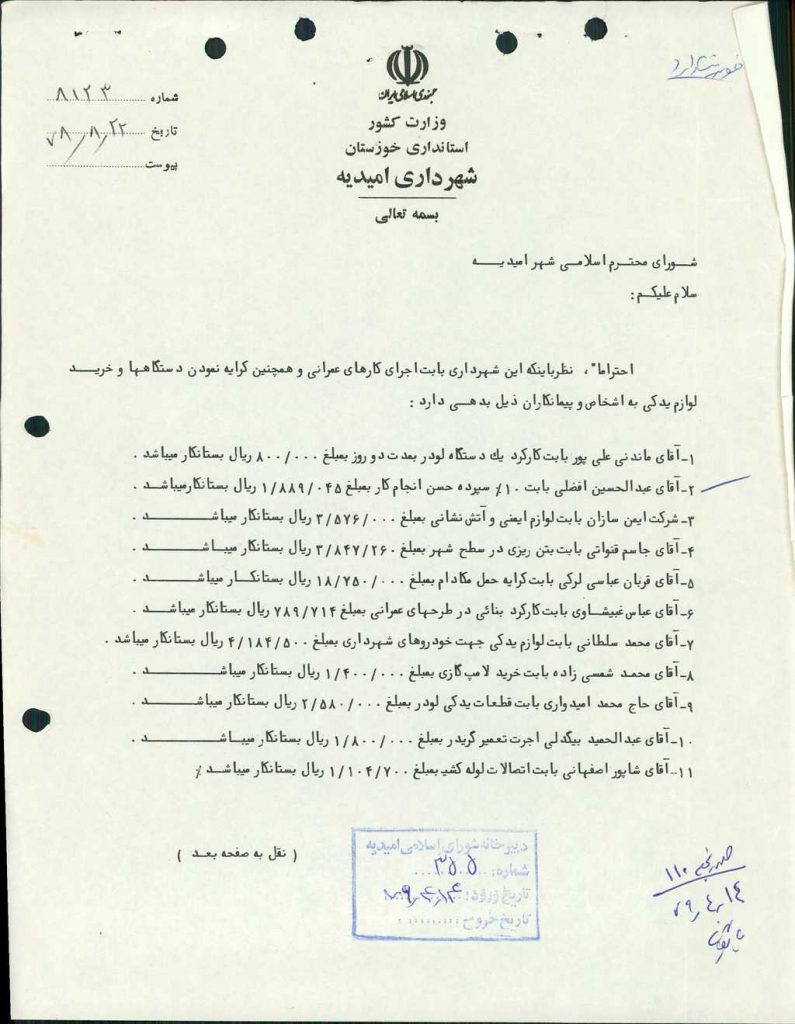 جمهوری اسلامی ایران
وزارت کشور
استانداری خوزستان
شهرداری امیدیه
بسمه تعالی
شماره ۸۱۲۳
تاریخ ۷۸/۸/۲۲
پیوست
شـورای محتـرم اسلامـی شهر امیدیـه
سلام علیکـم :
احتراما"، نظرباینکه این شهرداری بابت اجرای کارهای عمرانی و همچنین کرایه نمودن دستگاهها و خریـد
لوازم یدکی به اشخاص و پیمانکاران ذیل بدهـی دارد :
۱-آقای ماندنی علی پور بابت کارکرد یك دستگاه لودر بمدت دو روز بمبلغ ۸۰۰/۰۰۰ ریال بستانکار میباشد .
۲-آقای عبدالحسین افضلی بابت ۱۰٪ سپرده حسن انجام کار بمبلغ ۱/۸۸۹/۰۴۵ ریال بستانکارمیباشد .
۳-شرکت ایمن سازان بابت لوازم ایمنی و آتش نشانی بمبلغ ۳/۵۷۶/۰۰۰ ریال بستانکار میباشـد .
۴-آقای جاسم قنواتی بابت بتن ریزی در سطح شهر بمبلغ ۳/۸۴۷/۲۶۰ ریال بستانکار میبـاشـد .
۵-آقای قربان عباسی لرکی بابت کرایه حمل مکادام بمبلغ ۱۸/۷۵۰/۰۰۰ ریال بستانکـار میباشـد .
۶-آقای عباس غبیشاوی بابت کارکرد بنائی در طرحهای عمرانی بمبلغ ۷۸۹/۷۱۴ ریال بستانکار میباشـد .
۷-آقای محمد سلطانی بابت لوازم یدکی جهت خودروهای شهرداری بمبلغ ۴/۱۸۴/۵۰۰ ریال بستانکار میباشد .
۸-آقای محمـد شمسی زاده بابت خرید لامپ گازی بمبلغ ۱/۴۰۰/۰۰۰ ریال بستانکار میباشـد .
۹-آقای حاج محمد امیدواری بابت قطعات یدکی لودر بمبلغ ۲/۵۸۰/۰۰۰ ریال بستانکار میباشـد .
۱۰-آقای عبدالحمید بیگدلی اجرت تعمیر گریدر بمبلغ ۱/۸۰۰/۰۰۰ ریال بستانکار میبـاشـد .
۱۱-آقای شاپور اصفهانی بابت اتصالات لوله کشی بمبلغ ۱/۱۰۴/۷۰۰ ریال بستانکار میباشـد ٪
( نقل به صفحه بعـد )
دبیرخانه شورای اسلامی امیدیه
شماره: ۳۵۵
تاریخ ورود:
تاریخ خروج:
۱۱۰
۷۹/۴/۱۴